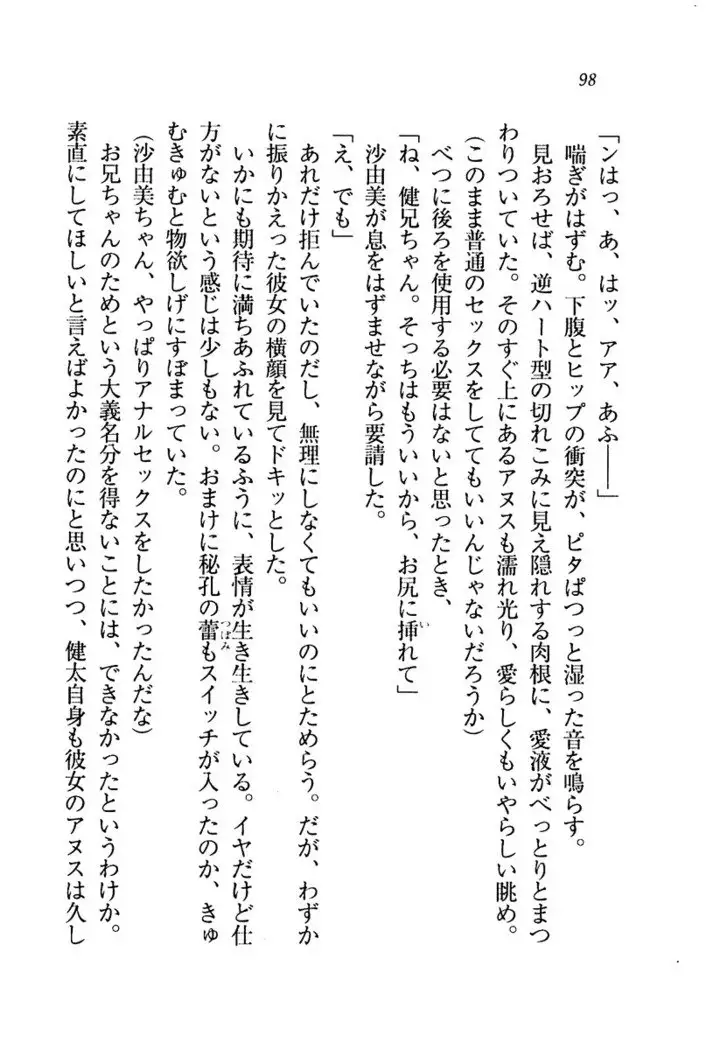 98
「ンはっ、あ、はッ、アア、あふ――」
喘ぎがはずむ。下腹とヒップの衝突が、ピタぱつっと湿った音を鳴らす。
見おろせば、逆ハート型の切れこみに見え隠れする肉根に、愛液がべっとりとまつ
わりついていた。そのすぐ上にあるアヌスも濡れ光り、愛らしくもいやらしい眺め。
(このまま普通のセックスをしててもいいんじゃないだろうか)
べつに後ろを使用する必要はないと思ったとき、
「ね、健兄ちゃん。そっちはもういいから、お尻に挿れて」
沙由美が息をはずませながら要請した。
「え、でも」
あれだけ拒んでいたのだし、無理にしなくてもいいのにとためらう。だが、わずか
に振りかえった彼女の横顔を見てドキッとした。
いかにも期待に満ちあふれているふうに、表情が生き生きしている。イヤだけど仕
方がないという感じは少しもない。おまけに秘孔の蕾もスイッチが入ったのか、きゅ
むきゅむと物欲しげにすぼまっていた。
(沙由美ちゃん、やっぱりアナルセックスをしたかったんだな)
お兄ちゃんのためという大義名分を得ないことには、できなかったというわけか。
素直にしてほしいと言えばよかったのにと思いつつ、健太自身も彼女のアヌスは久し